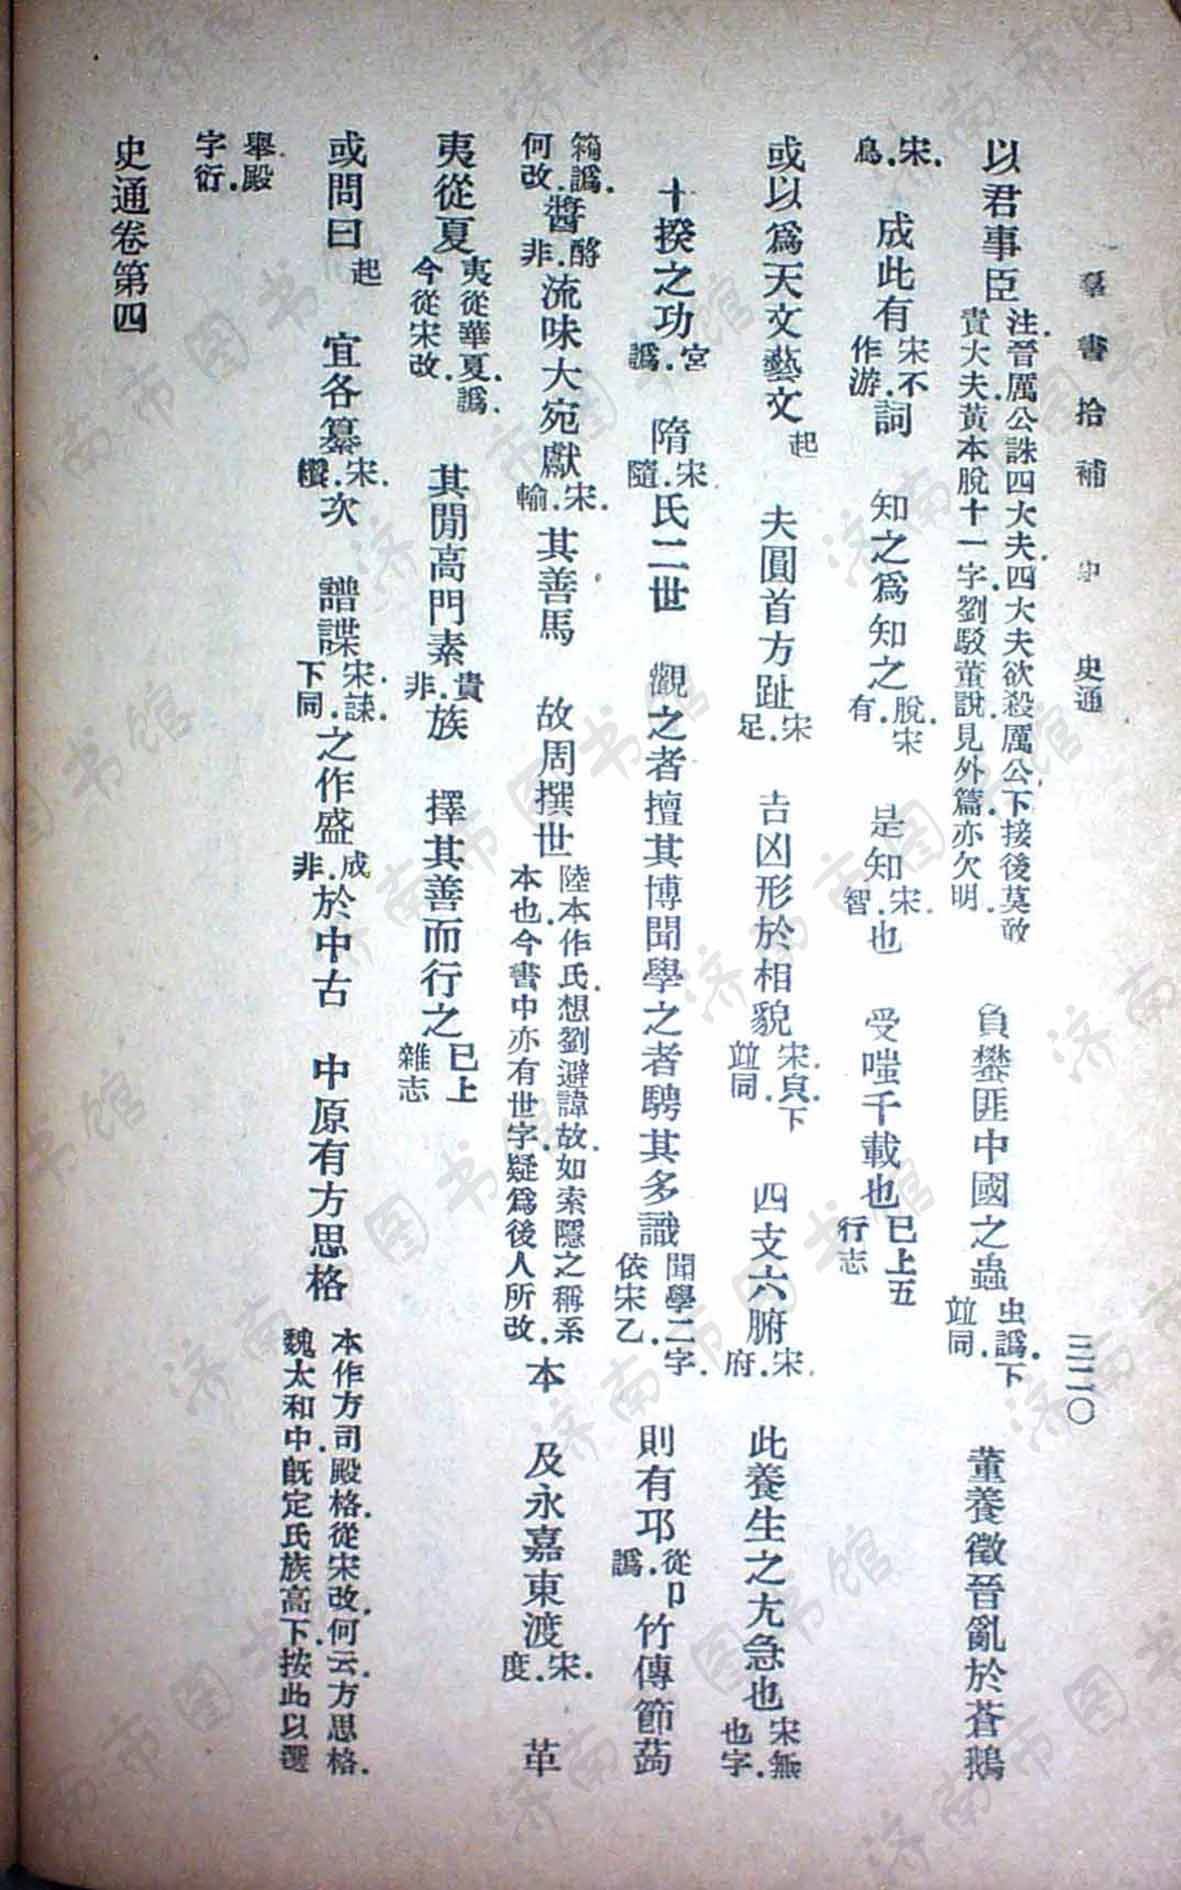 羣書拾補 史通 三二〇
以君事臣 注晉厲公誅四大夫.四大夫欲殺厲公.下接後莫敢責大夫.黃本脫十一字.劉駁董說.見外篇.亦欠明. 負蠜匪中國之蟲 虫譌.下竝同. 董養徵晉亂於蒼鵝
宋.鳥. 成此有 宋不作游. 詞 知之爲知之 脫.宋有. 是知 宋.智. 也 受嗤千載也 已上五行志
或以爲天文藝文 起 夫圓首方趾 宋.足. 吉凶形於相貌 宋.皃.下竝同. 四支六腑 宋.府. 此養生之尤急也 宋無也字.
十揆之功 宮譌. 隋 宋.隨. 氏二世 觀之者擅其博聞學之者騁其多識 聞學二字.依宋乙. 則有邛 從卩譌. 竹傳節蒟
箱譌.何改. 醬 酪非. 流味大宛獻 宋.輸. 其善馬 故周撰世 陸本作氏.想劉避諱故.如索隱之稱系本也.今書中亦有世字.疑爲後人所改. 本 及永嘉東渡 宋.度. 革
夷從夏 夷從華夏.譌.今從宋改. 其閒高門素 貴非. 族 擇其善而行之 已上雜志
或問曰 起 宜各纂 宋.櫕. 次 譜諜 宋.諫.下同. 之作盛 成非. 於中古 中原有方思格 本作方司殿格.從宋改.何云.方思格.魏太和中.旣定氏族高下.按此以選
舉.殿字衍.
史通卷第四
济南市图书馆